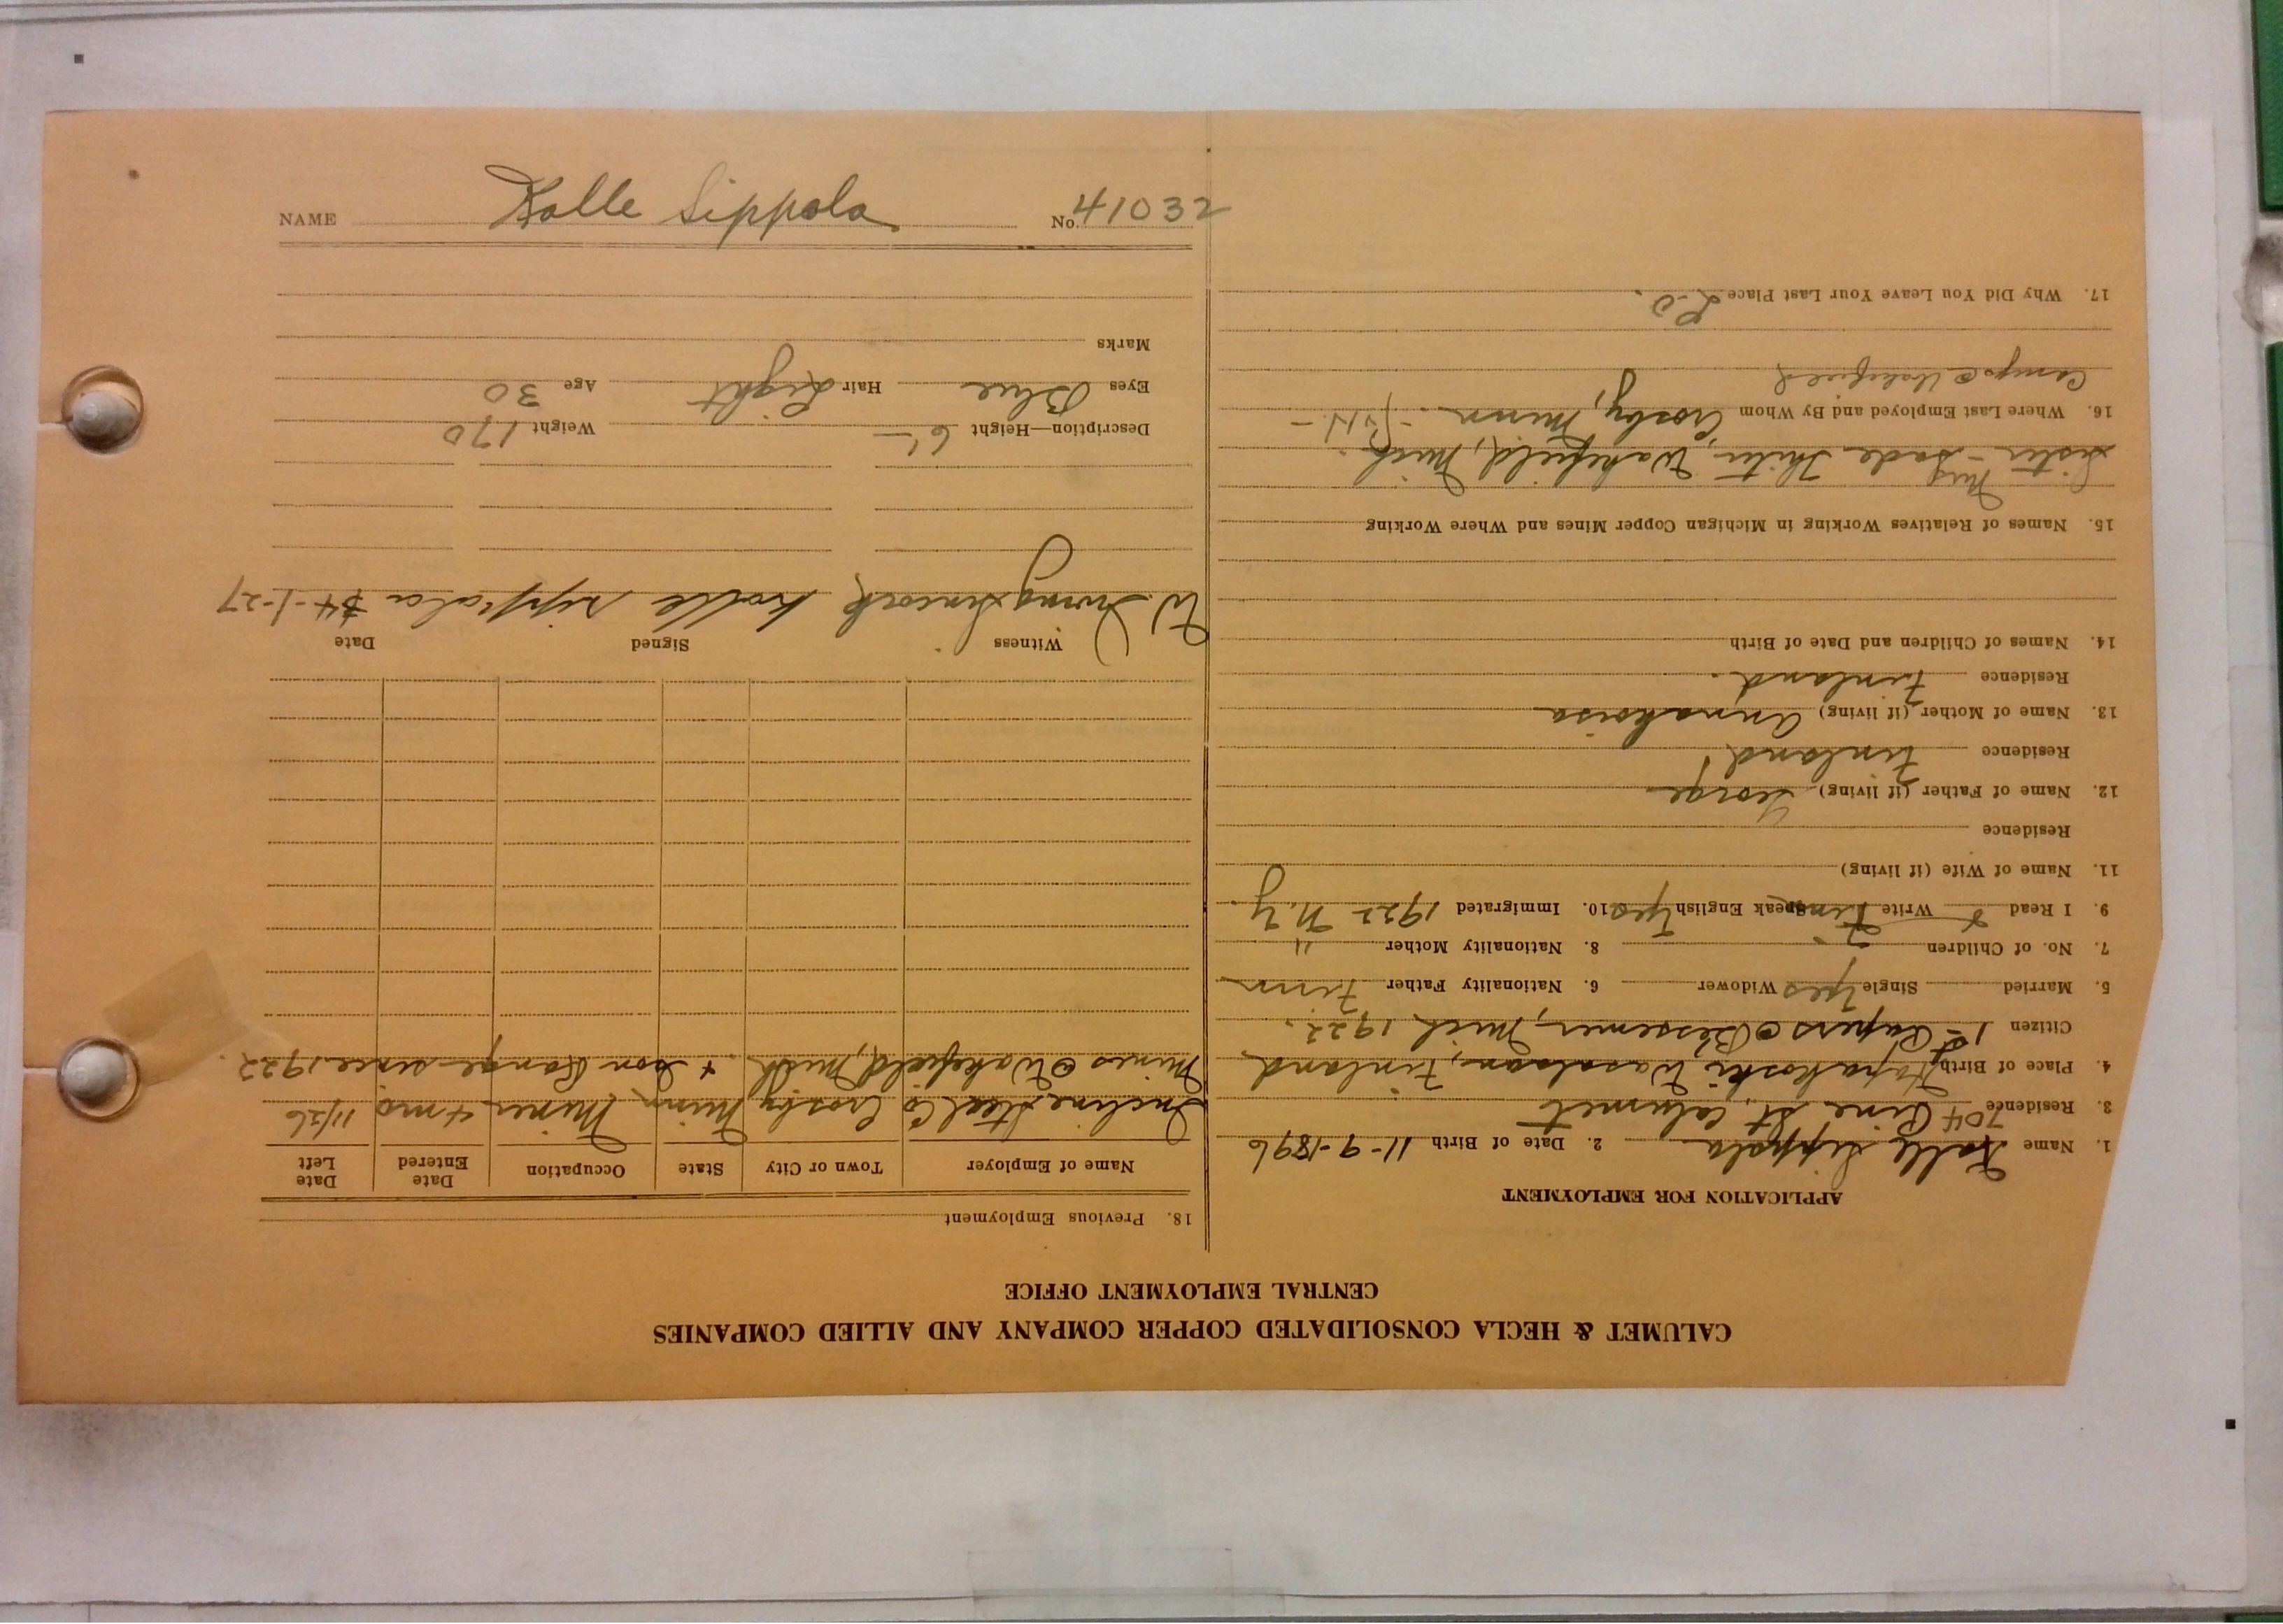 NAME Kalle Sippola No. 41032
CALUMET & HECLA CONSOLIDATED COPPER COMPANY AND ALLIED COMPANIES
CENTRAL EMPLOYMENT OFFICE
APPLICATION FOR EMPLOYMENT
1. Name Kalle Sippola 2. Date of Birth 11-9-1896
3. Residence 704 Pine St., Calumet
4. Place of Birth Wasalaan, Finland
Citizen 1st Papers @ Bessemer, Mich 1922.
5. Married Single Yes Widower 6. Nationality Father Finn
7. No. of Children 8. Nationality Mother "
9. I Read & Write Finn Speak English Yes 10. Immigrated 1922 N.Y.
11. Name of Wife (if living)
Residence
12. Name of Father (if living) George
Residence Finland
13. Name of Mother (if living) Annaloisa
Residence Finland.
14. Names of Children and Date of Birth
15. Names of Relatives Working in Michigan Copper Mines and Where Working
Sister - Mrs Wakefield, Mich.
16. Where Last Employed and By Whom Crosby, Minn.
Camps @ Wakefield
17. Why Did You Leave Your Last Place L-O.
18. Previous Employment
Name of Employer Town or City State Occupation Date Entered Date Left
Inclines Steel Co Crosby Minn Miner 4 mo 11/26
Mines @ Wakefield, Mich. & Iron Range since 1922.
Witness Signed Date
W. Irving kalle sippola 4-1-27
Description—Height 6'— Weight 170
Eyes Blue Hair Light Age 30
Marks